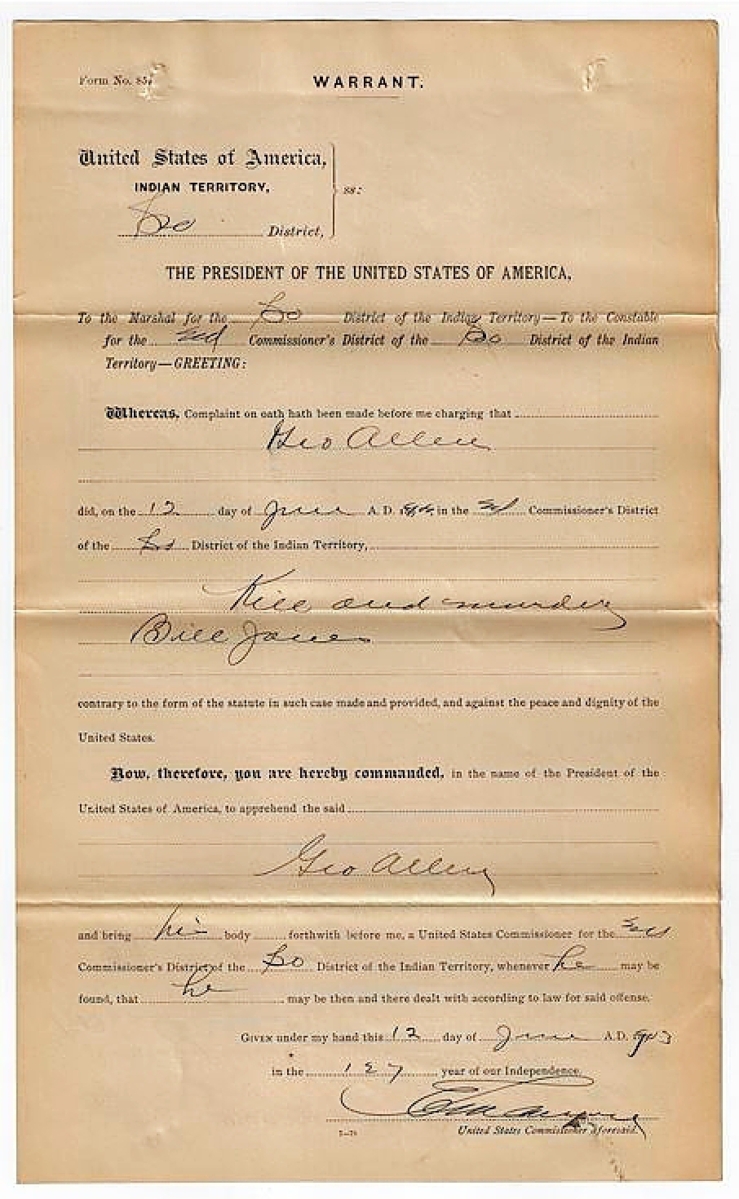 Form No. 85
WARRANT.
United States of America,
INDIAN TERRITORY,
ss:
So District,
THE PRESIDENT OF THE UNITED STATES OF AMERICA,
To the Marshal for the So District of the Indian Territory—To the Constable
for the Commissioner's District of the So District of the Indian
Territory—GREETING:
Whereas, Complaint on oath hath been made before me charging that
Geo Allen
did, on the 12 day of June A. D. in the Commissioner's District
of the So District of the Indian Territory,
Kill and murder
Bill Jones
contrary to the form of the statute in such case made and provided, and against the peace and dignity of the
United States.
Now, therefore, you are hereby commanded, in the name of the President of the
United States of America, to apprehend the said
Geo Allen
and bring his body forthwith before me, a United States Commissioner for the
Commissioner's District of the So District of the Indian Territory, whenever he may be
found, that he may be then and there dealt with according to law for said offense.
GIVEN under my hand this 12 day of June A.D. 903
in the 127 year of our Independence.
United States Commissioner aforesaid.